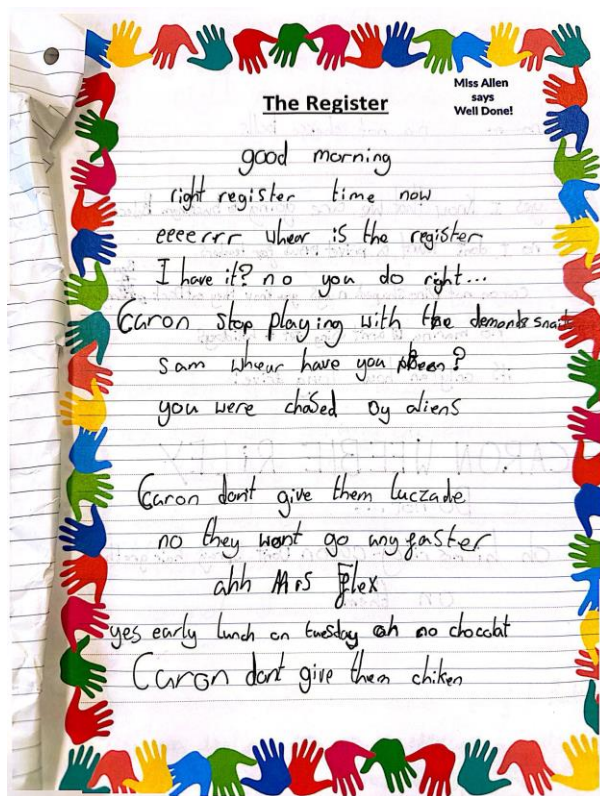 The Register
Miss Allen
says
Well Done!
good morning
right register time now
eeeerrr whear is the register
I have it? no you do right...
Caron stop playing with the demonds snails
Sam whear have you been?
you were chased by aliens
Caron dont give them luczade
no they wont go any faster
ahh Mrs Flex
yes early lunch on tuesday oh no chocolat
Caron dont give them chiken